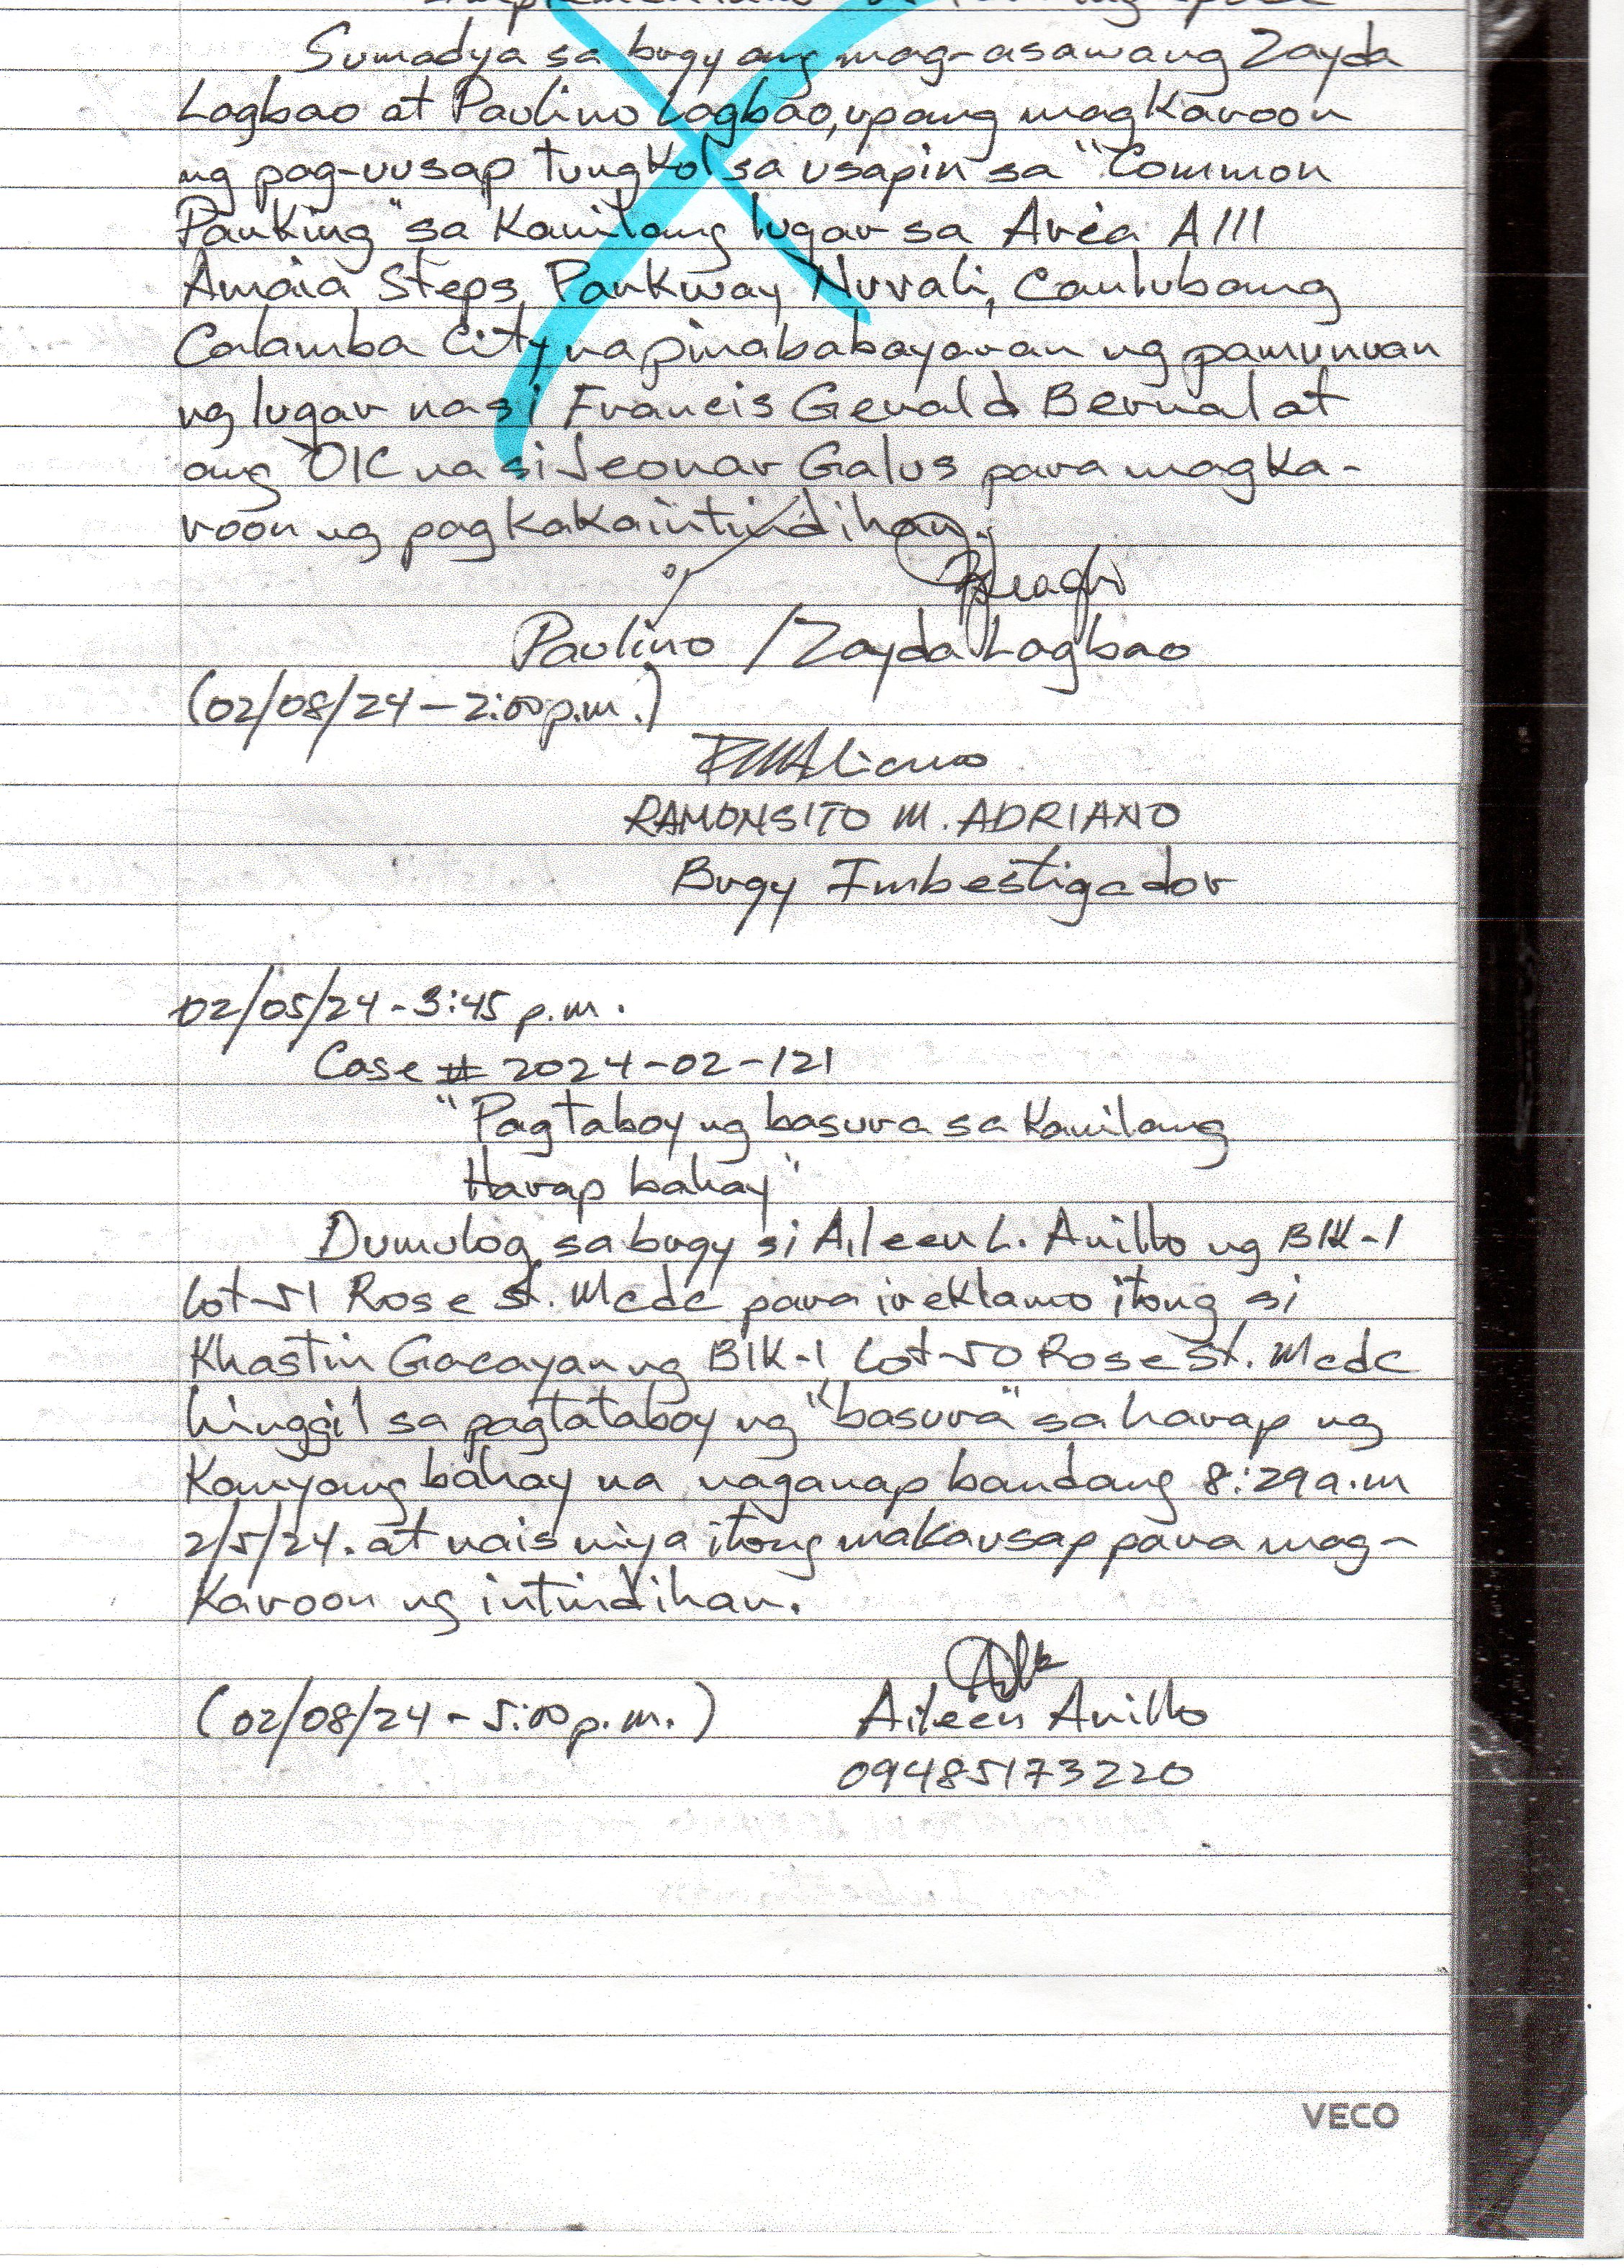 Sumadya sa brgy ang mag-asawang Zayda
Lagbao at Paulino Lagbao, upang magkaroon
ng pag-uusap tungkol sa usapin sa "Common
Parking" sa kanilang lugar sa Area A111
Amaia Steps, Parkway Nuvali, Canlubang
Calamba City na pinababayaran ng pamunuan
ng lugar na si Francis Gerald Bernal at
ang OIC na si Jeonar Galus para magka-
roon ng pagkakaintindihan.
Paulino / Zayda Lagbao
(02/08/24 - 2:00 p.m.)
RAMONSITO M. ADRIANO
Brgy Imbestigador
02/05/24 - 3:45 p.m.
Case # 2024-02-121
"Pagtaboy ng basura sa kanilang
Harap bahay"
Dumulog sa brgy si Aileen L. Anillo ng Blk-1
Lot-51 Rose St. Mcdc para ireklamo itong si
Khastin Gacayan ng Blk-1, Lot-50 Rose St. Mcdc
hinggil sa pagtataboy ng "basura" sa harap ng
kanyang bahay na naganap bandang 8:29 a.m
2/5/24. at nais niya itong makausap para mag-
karoon ng intindihan.
(02/08/24 - 5:00 p.m.) Aileen Anillo
09485173220
VECO